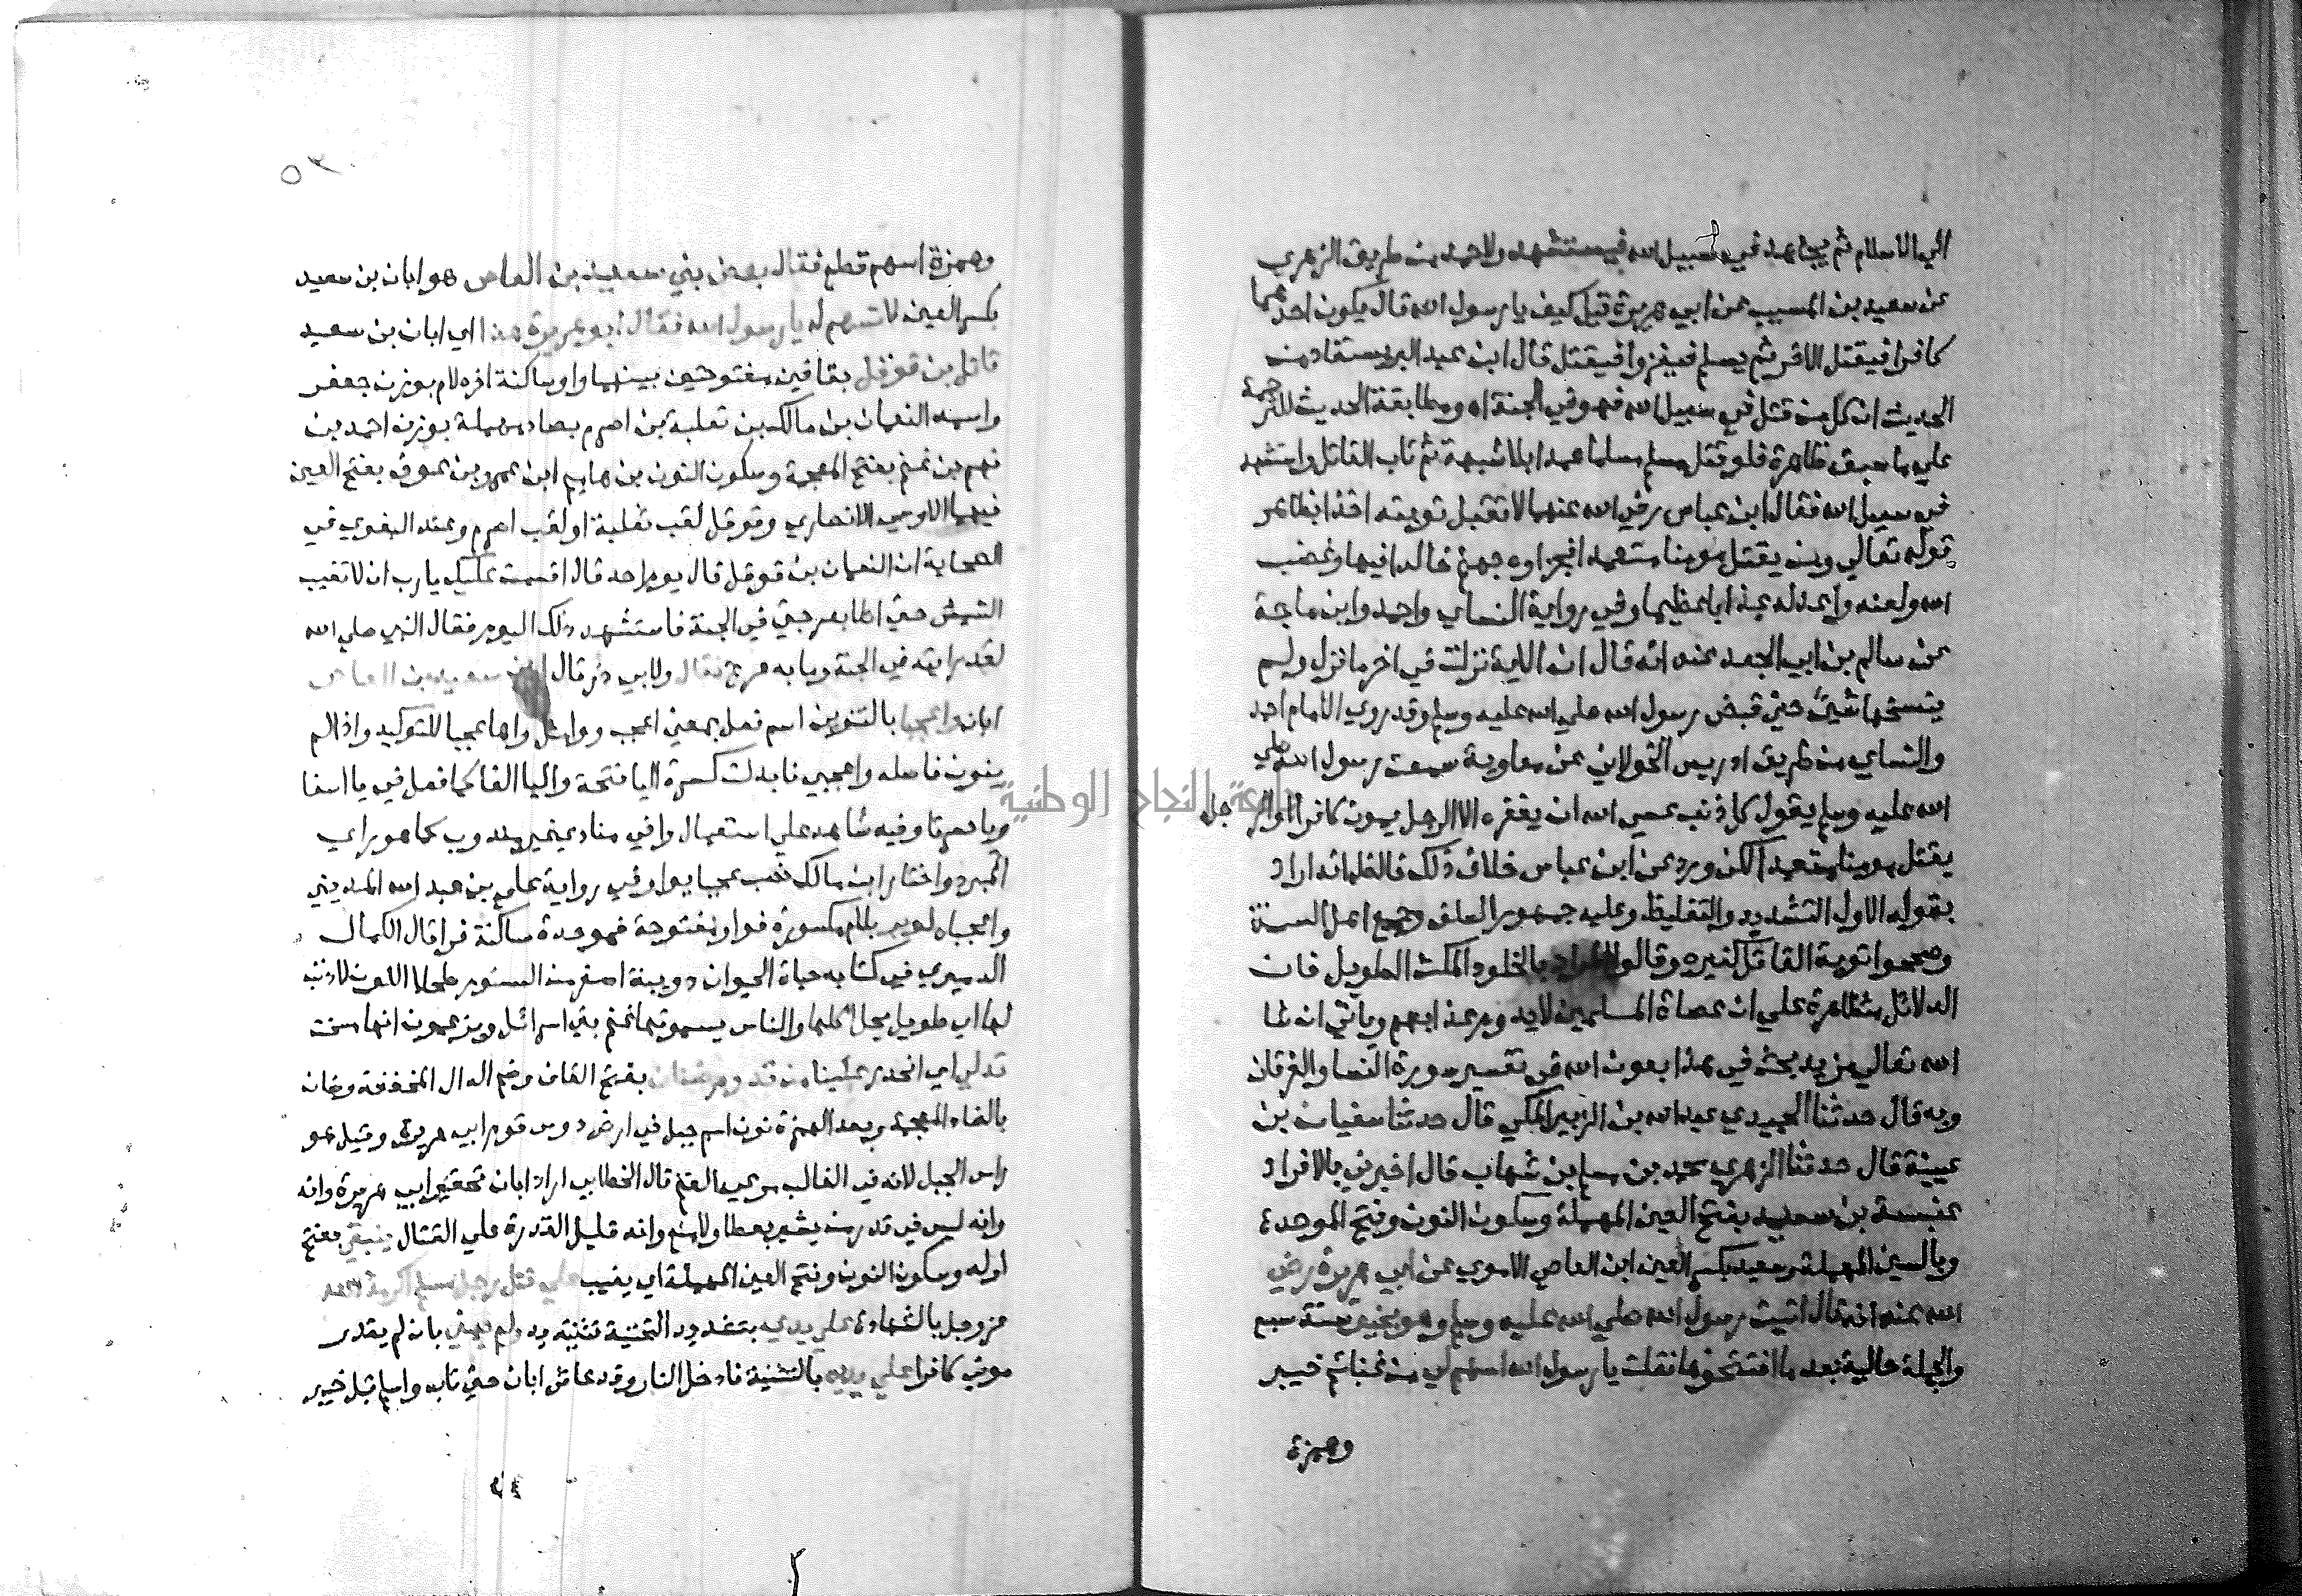 الي الاسلام ثم يجاهد في سبيل الله فيستشهد ولاحمد من طريق الزهري
عن سعيد بن المسيب عن ابي هريرة قيل كيف يا رسول الله قال يكون احدهما
كافرا فيقتل الاخر ثم يسلم فيغزوا فيقتل قال ابن عبد البر يستفاد من
الحديث ان كل من قتل في سبيل الله فهو في الجنة اه ومطابقة الحديث للترجمة
علي ما سبق ظاهرة فلو قتل مسلم مسلما عمدا بلا شبهة ثم تاب القاتل واستشهد
في سبيل الله فقال ابن عباس رضي الله عنهما لا تقبل توبته اخذا بظاهر
قوله تعالي ومن يقتل مومنا متعمدا فجزاوه جهنم خالدا فيها وغضب
الله ولعنه واعد له عذابا عظيما وفي رواية النساي واحمد وابن ماجة
عن سالم بن ابي الجعد عنه انه قال ان الاية نزلت في اخر ما نزل ولم
ينسخها شيء حتي قبض رسول الله صلي الله عليه وسلم وقد روي الامام احمد
والنساي من طريق ادريس الخولاني عن معاوية سمعت رسول الله صلي
الله عليه وسلم يقول كل ذنب عسي الله ان يغفره الا الرجل يموت كافرا او الرجل
يقتل مومنا متعمدا لكن ورد عن ابن عباس خلاف ذلك فالظاهر انه اراد
بقوله الاول التشديد والتغليظ وعليه جمهور السلف وجميع اهل السنة
وصححوا توبة القاتل كغيره وقالوا المراد بالخلود المكث الطويل فان
الدلائل متظاهرة علي ان عصاة المسلمين لا يدوم عذابهم وياتي ان شا
الله تعالي مزيد بحث في هذا بعون الله في تفسير سورة النسا والفرقان
وبه قال حدثنا الحميدي عبد الله بن الزبير المكي قال حدثنا سفيان بن
عيينة قال حدثنا الزهري محمد بن مسلم بن شهاب قال اخبرني بالافراد
عنبسة بن سعيد بفتح العين المهملة وسكون النون وفتح الموحدة
وبالسين المهملة وسعيد بكسر العين ابن العاص الاموي عن ابي هريرة رضي
الله عنه انه قال اتيت رسول الله صلي الله عليه وسلم وهو بخيبر سنة سبع
والجملة حالية بعد ما افتتحوها فقلت يا رسول الله اسهم لي من غنائم خيبر
وهمزة
٥٣
وهمزة اسهم قطع فقال بعض بني سعيد بن العاص هو ابان بن سعيد
بكسر العين لا تسهم له يا رسول الله فقال ابو هريرة هذا اي ابان بن سعيد
قاتل بن قوقل بقافين مفتوحتين بينهما واو ساكنة اخره لام بوزن جعفر
واسمه النعمان بن مالك بن ثعلبة بن اصرم بصاد مهملة بوزن احمد بن
فهم بن غنم بفتح المعجمة وسكون النون بن ابن عمرو بن عوف بفتح العين
فيهما الاوسي الانصاري وقوقل لقب ثعلبة او لقب اصرم وعند البغوي في
الصحابة ان النعمان بن قوقل قال يوم احد قال اقسمت عليك يا رب ان لا تغيب
الشمس حتي اطا بعرجتي في الجنة فاستشهد ذلك اليوم فقال النبي صلي الله
لقد رايته في الجنة وما به عرج فقال ولابي ذر قال ابن سعيد بن العاص
ابان واعجبا بالتنوين اسم فعل بمعني اعجب ووا مثل واها عجبا للتوكيد واذا لم
ينون فاصله واعجبي فابدلت كسرة اليا فتحة واليا الفا كما فعل في يا اسفا
ويا حسرتا وفيه شاهد علي استعمال وا في منادي غير مندوب كما هو راي
المبرد واختار ابن مالك نصب عجبا بوا وفي رواية علي بن عبد الله المديني
واعجباه لوبر بلام مكسورة فواو مفتوحة فموحدة ساكنة فرا قال الكمال
الدميري في كتابه حياة الحيوان دويبة اصغر من السنور طحلا اللون لا ذنب
لها اي طويل يحل اكلها والناس يسمونها غنم بني اسرائل ويزعمون انها مسخت
تدلي اي انحدر علينا من قدوم ضان بفتح القاف وضم الدال المخففة وضان
بالضاد المعجمة وبعد الهمزة نون اسم جبل في ارض دوس قوم ابي هريرة وقيل هو
راس الجبل لانه في الغالب مرعي الغنم قال الخطابي اراد ابان تحقير ابي هريرة وانه
وانه ليس في قدر من يشير بعطا ولا منع وانه قليل القدرة علي القتال ينعي بفتح
اوله وسكون النون وفتح العين المهملة اي يعيب علي قتل رجل مسلم اكرمه الله
عز وجل بالشهادة علي يدي بتشديد التحتية تثنية يد ولم يهني بان لم يقدر
موتي كافرا علي يديه بالتثنية فادخل النار وقد عاش ابان حتي تاب واسلم قبل خيبر
جامعة النجاح الوطنية